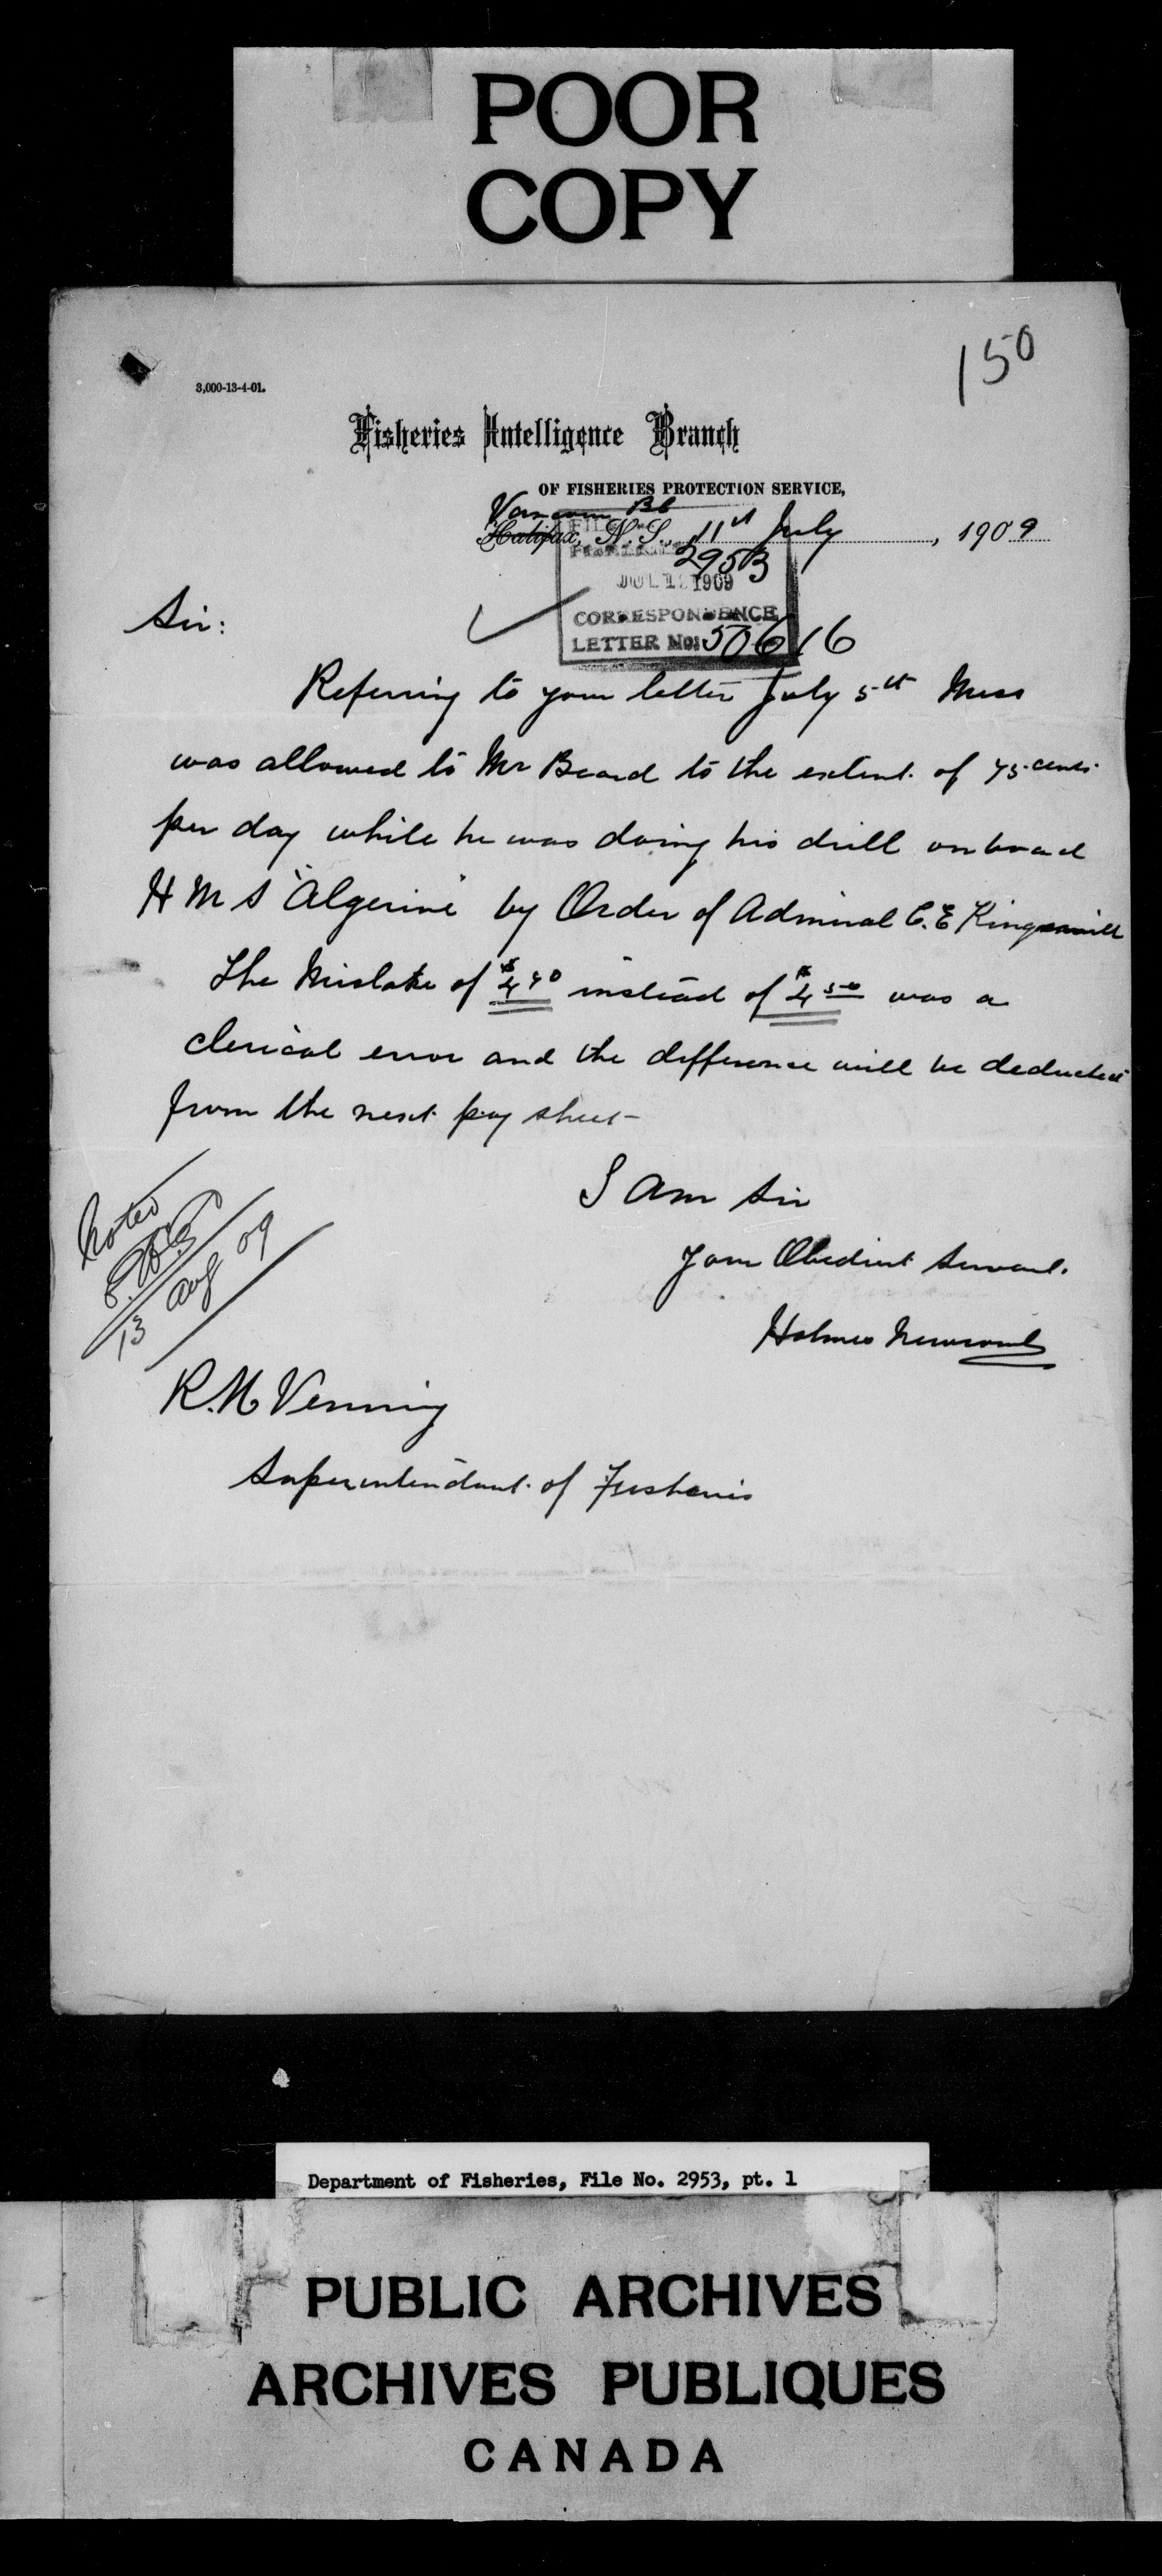 POOR
COPY
150
3,000-13-4-01.
Fisheries Intelligence Branch
OF FISHERIES PROTECTION SERVICE,
Vancouver BC
Halifax, N. S., 11th July, 1909
2953
JUL 1 1909
CORRESPONDENCE
LETTER No: 50616
Sir:
Referring to your letter July 5th Mess
was allowed to Mr Beard to the extent of 75 cents
per day while he was doing his drill on board
H M S "Algerine" by Order of Admiral C. E Kingsmill
The Mistake of $4 70 instead of $4 50 was a
clerical error and the difference will be deducted
from the next pay sheet
I am Sir
Your Obedient Servant.
Holmes Newcomb
Noted
13 Aug 09
R. N Venning
Superintendant of Fisheries
Department of Fisheries, File No. 2953, pt. 1
PUBLIC ARCHIVES
ARCHIVES PUBLIQUES
CANADA